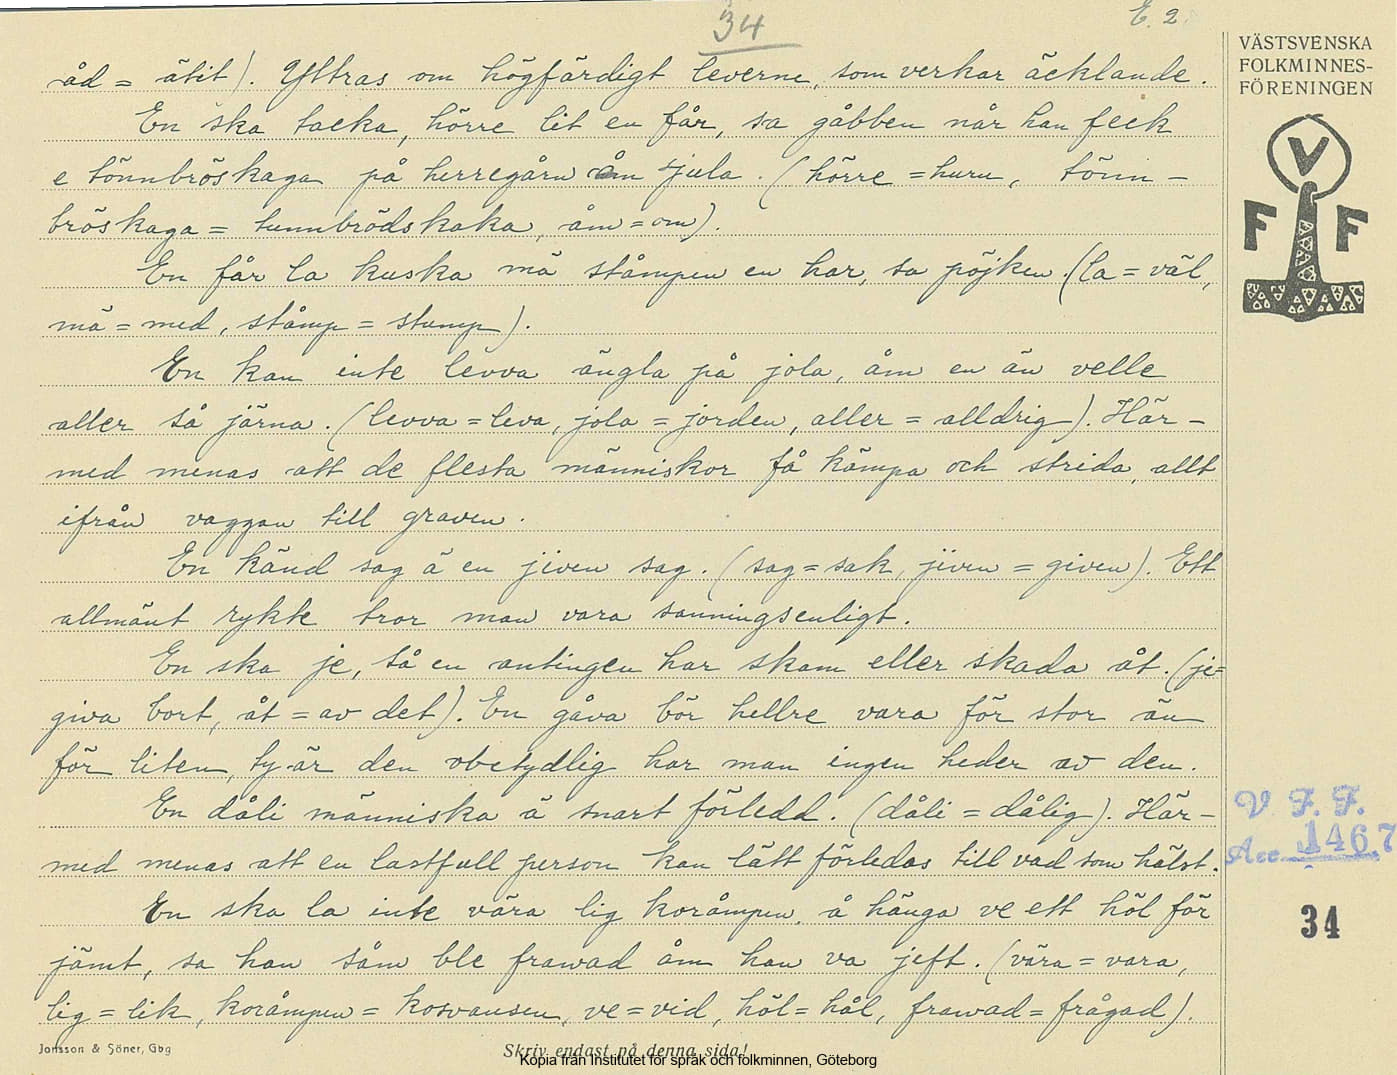 34
E. 2.
VÄSTSVENSKA
FOLKMINNES-
FÖRENINGEN
V
F F
åd = ätit). Yttras om högfärdigt leverne, som verkar äcklande.
En ska tacka, hörre lit en får, sa gåbben når han feck
e tönnbröskaga på herregårn åm jula. (hörre = huru, tönn-
bröskaga = tunnbrödskaka, åm = om).
En får la kuska mä ståmpen en har, sa pöjken. (la = väl,
mä = med, ståmp = stump).
En kan inte levva ängla på jola, åm en än velle
aller så järna. (levva = leva, jola = jorden, aller = alldrig). Här-
med menas att de flesta människor få kämpa och strida, allt
ifrån vaggan till graven.
En känd sag ä en jiven sag. (sag = sak, jiven = given). Ett
allmänt rykte tror man vara sanningsenligt.
En ska je, så en antingen har skam eller skada åt. (je =
giva bort, åt = av det). En gåva bör hellre vara för stor än
för liten, ty är den obetydlig har man ingen heder av den.
En dåli människa ä snart förledd. (dåli = dålig). Här-
med menas att en lastfull person kan lätt förledas till vad som hälst.
En ska la inte vära lig koråmpen, å hänga ve ett höl för
jämt, sa han såm ble frawad åm han va jeft. (vära = vara,
lig = lik, koråmpen = kosvansen, ve = vid, höl = hål, frawad = frågad).
V. F. F.
Acc. 1467
34
Jonsson & Söner, Gbg
Skriv endast på denna sida!
Kopia från Institutet för språk och folkminnen, Göteborg